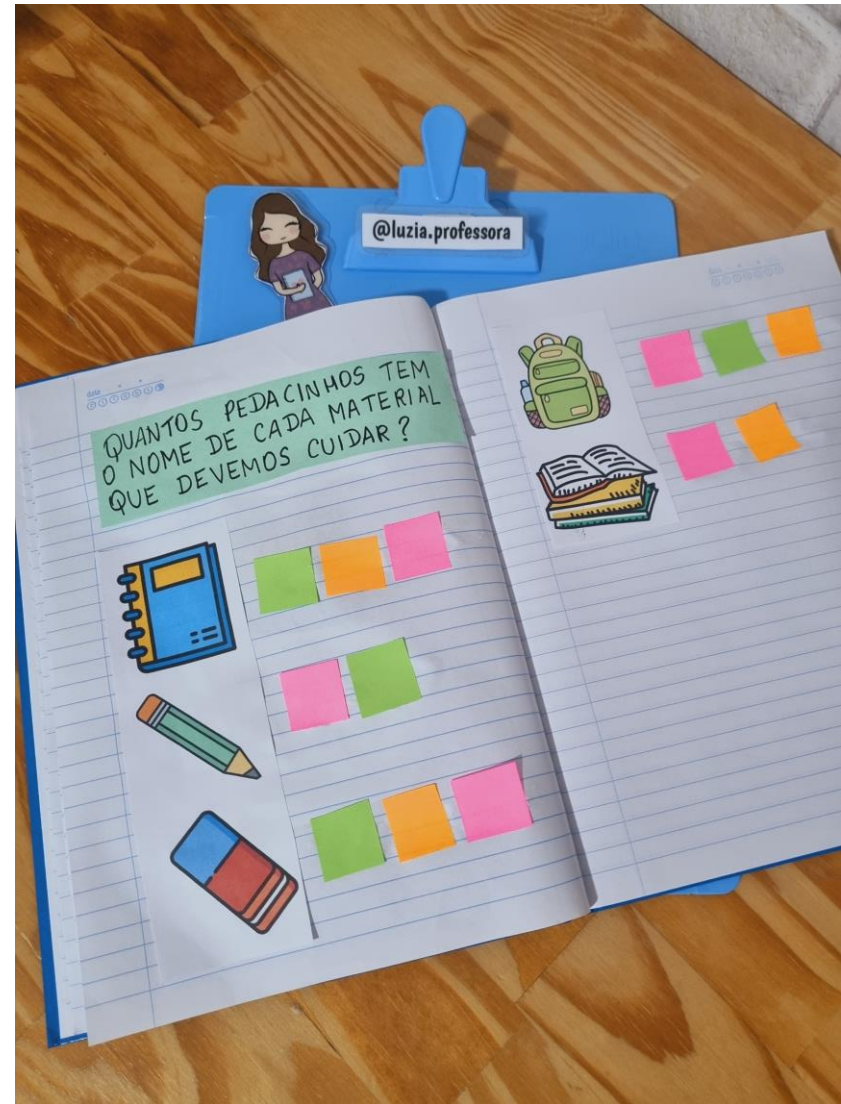 @luzia.professora
data
QUANTOS PEDACINHOS TEM
O NOME DE CADA MATERIAL
QUE DEVEMOS CUIDAR?